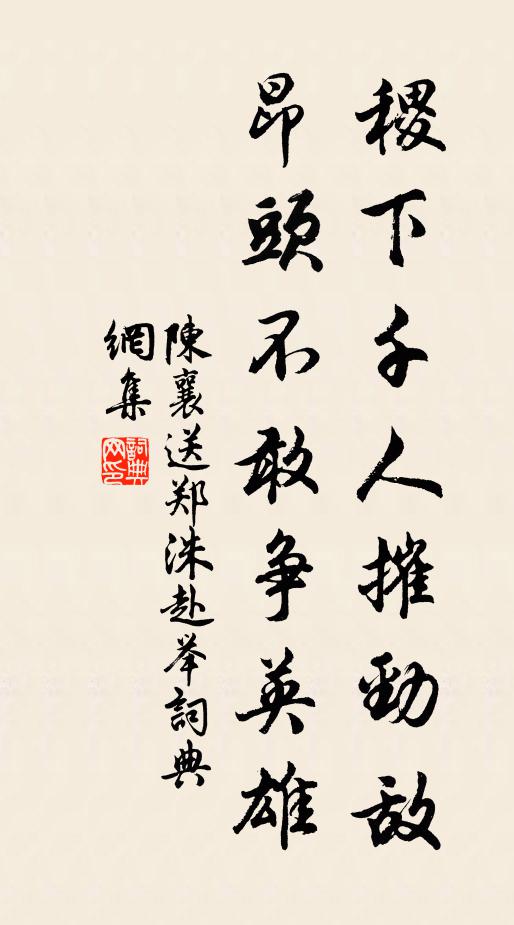 稷下千人摧勁敌
昂頭不敢争英雄
陳襄送郑洙赴举詞典
網集
詞典网印